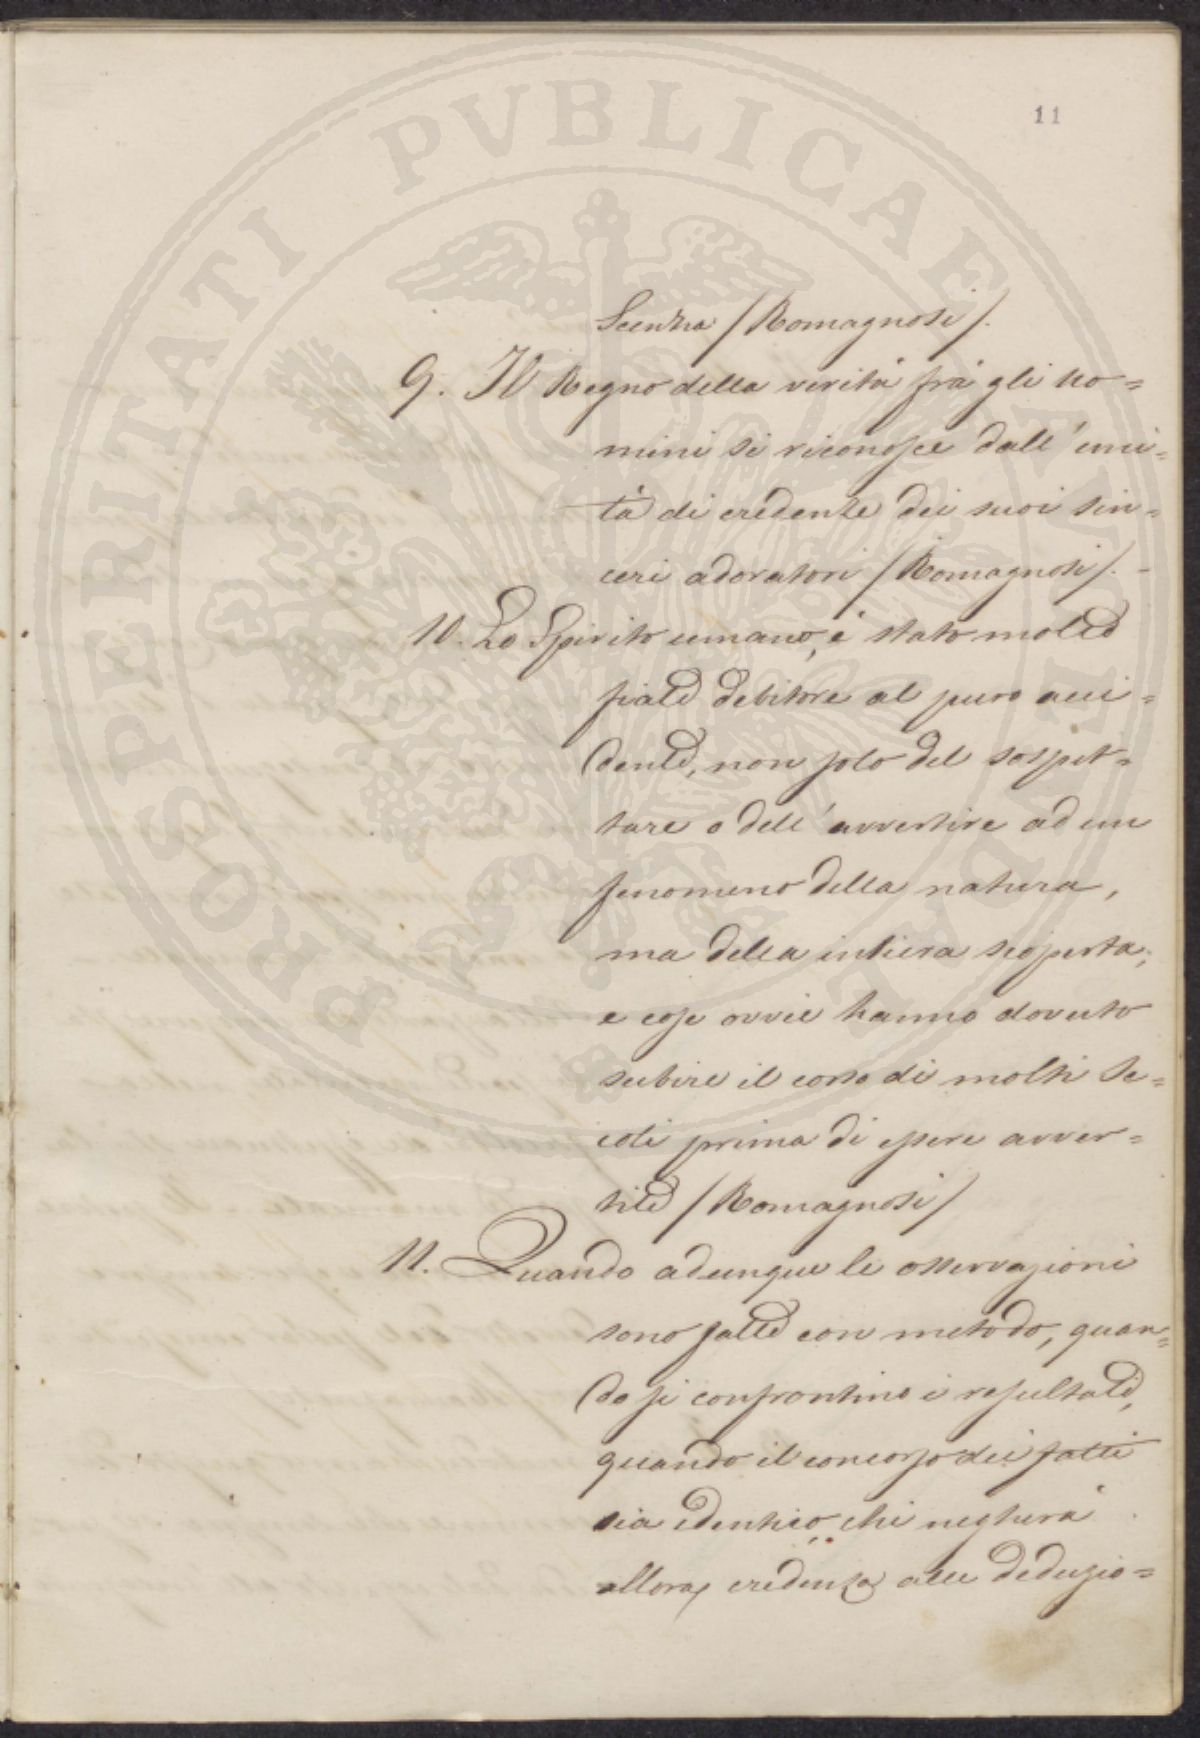 11
PROSPERITATI PVBLICAE AVGENDAE
Scienza /Romagnosi/.
9. Il Regno della verità frà gli uo=
mini si riconosce dall'uni=
tà di credenze dei suoi sin=
ceri adoratori /Romagnosi/. -
10. Lo Spirito umano, è stato molte
fiate debitore al puro acci=
dente, non solo del sospet=
tare o dell'avvertire ad un
fenomeno della natura,
ma della intiera scoperta;
e cose ovvie hanno dovuto
subire il corso di molti se=
coli prima di essere avver=
tite /Romagnosi/
11. Quando adunque le osservazioni
sono fatte con metodo, quan=
do si confrontino i resultati,
quando il concorso dei fatti
sia identico, chi negherà
allora, credenza alle deduzio=